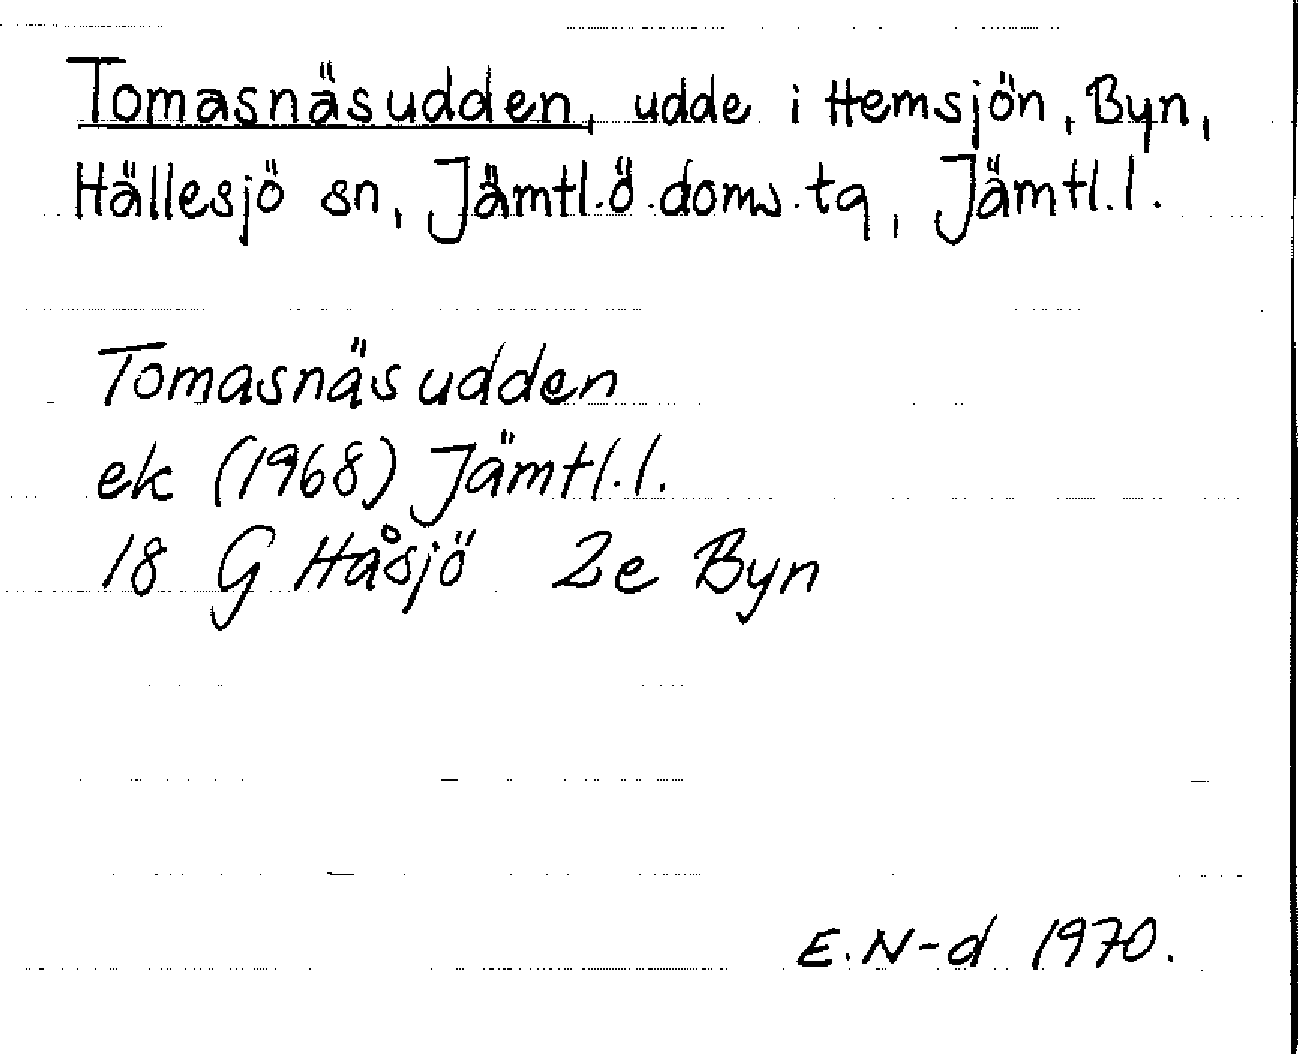 Tomasnäsudden, udde i Hemsjön, Byn,
Hällesjö sn, Jämtl.ö.doms.tg, Jämtl.l.
Tomasnäsudden
ek (1968) Jämtl.l.
18 G Håsjö 2e Byn
E.N-d 1970.